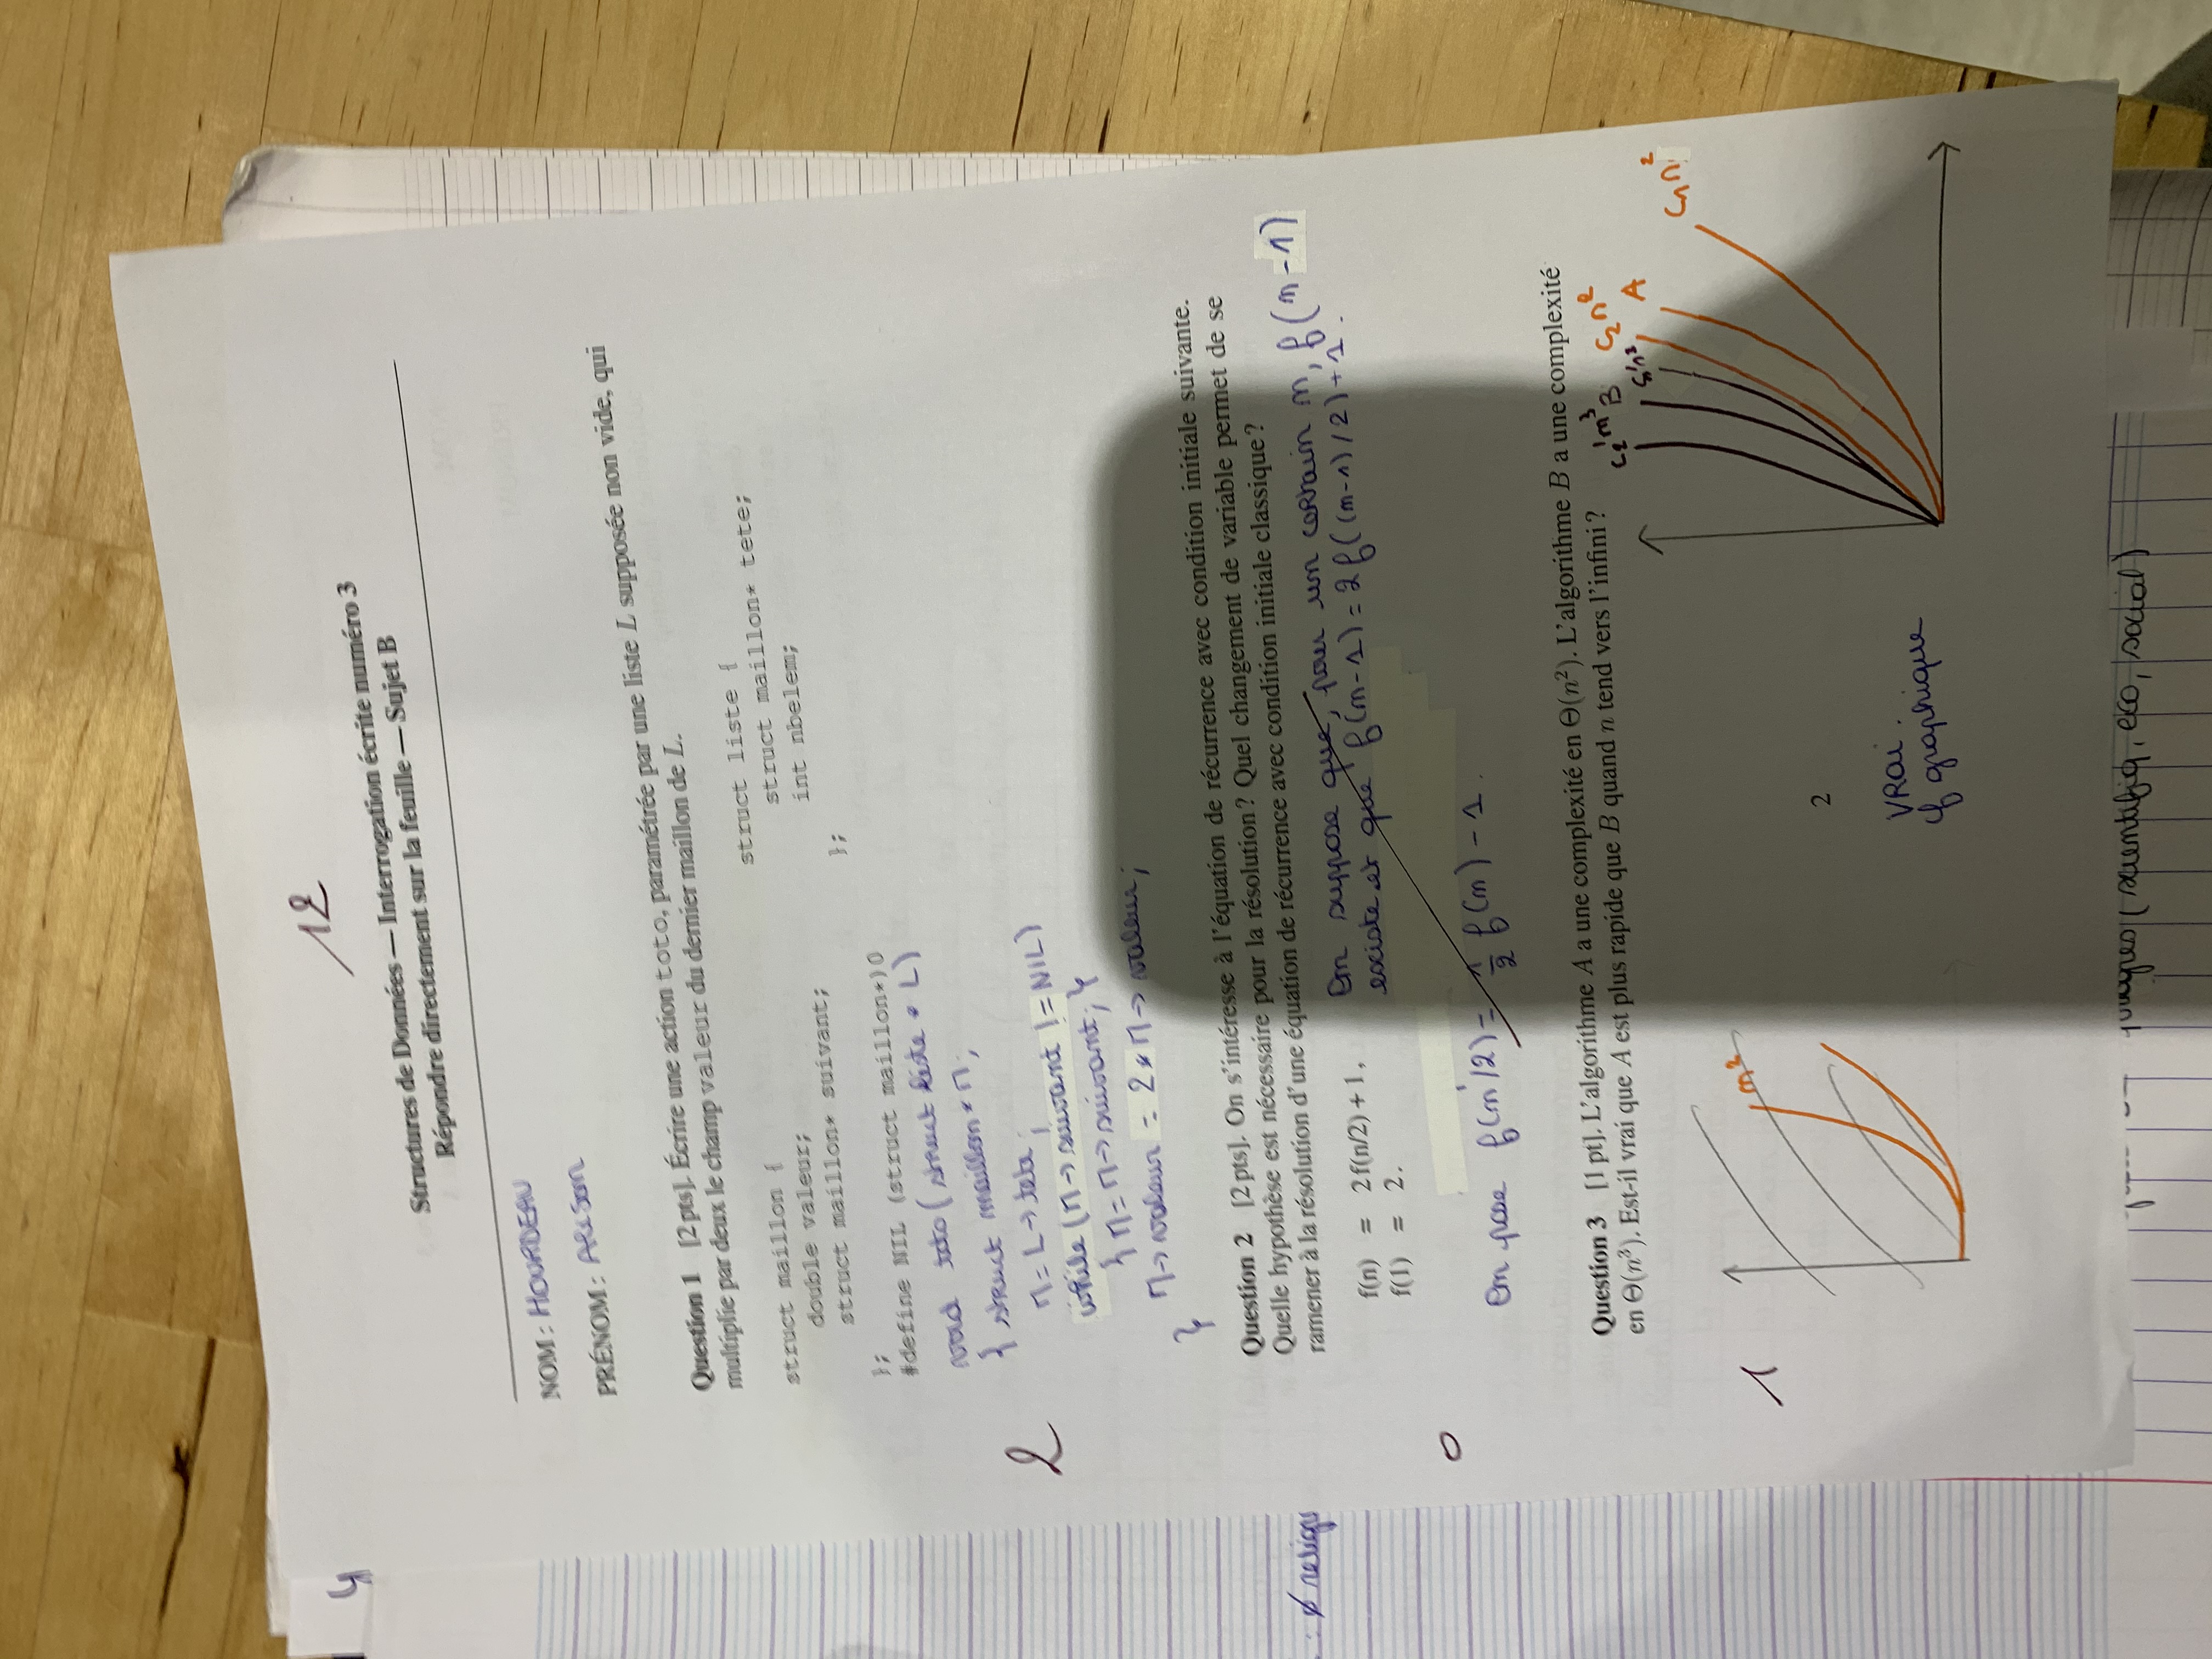 12
Structures de Données — Interrogation écrite numéro 3
Répondre directement sur la feuille — Sujet B
NOM : HOURDEAU
PRÉNOM : Alison
Question 1 [2 pts]. Écrire une action toto, paramétrée par une liste L supposée non vide, qui
multiplie par deux le champ valeur du dernier maillon de L.
struct maillon {
double valeur;
struct maillon* suivant;
};
#define NIL (struct maillon*)0
struct liste {
struct maillon* tete;
int nbelem;
};
void toto (struct liste * L)
{ struct maillon * M;
M = L -> tete;
while (M -> suivant != NIL)
{ M = M -> suivant; }
M -> valeur = 2 * M -> valeur;
}
2
Question 2 [2 pts]. On s'intéresse à l'équation de récurrence avec condition initiale suivante.
Quelle hypothèse est nécessaire pour la résolution ? Quel changement de variable permet de se
ramener à la résolution d'une équation de récurrence avec condition initiale classique ?
f(n) = 2f(n/2) + 1,
f(1) = 2.
On suppose que, pour un certain n, f(n-1)
existe et que f(n-1) = 2f((n-1)/2) + 1.
0
On pose f(n/2) = 1/2 f(n) - 1.
Question 3 [1 pt]. L'algorithme A a une complexité en Θ(n²). L'algorithme B a une complexité
en Θ(n³). Est-il vrai que A est plus rapide que B quand n tend vers l'infini ?
1
n²
c₂'n³
B
c₁'n³
c₂n²
A
c₁n²
2
VRai.
cf graphique
: ∅
(scientifiq, eco, social)